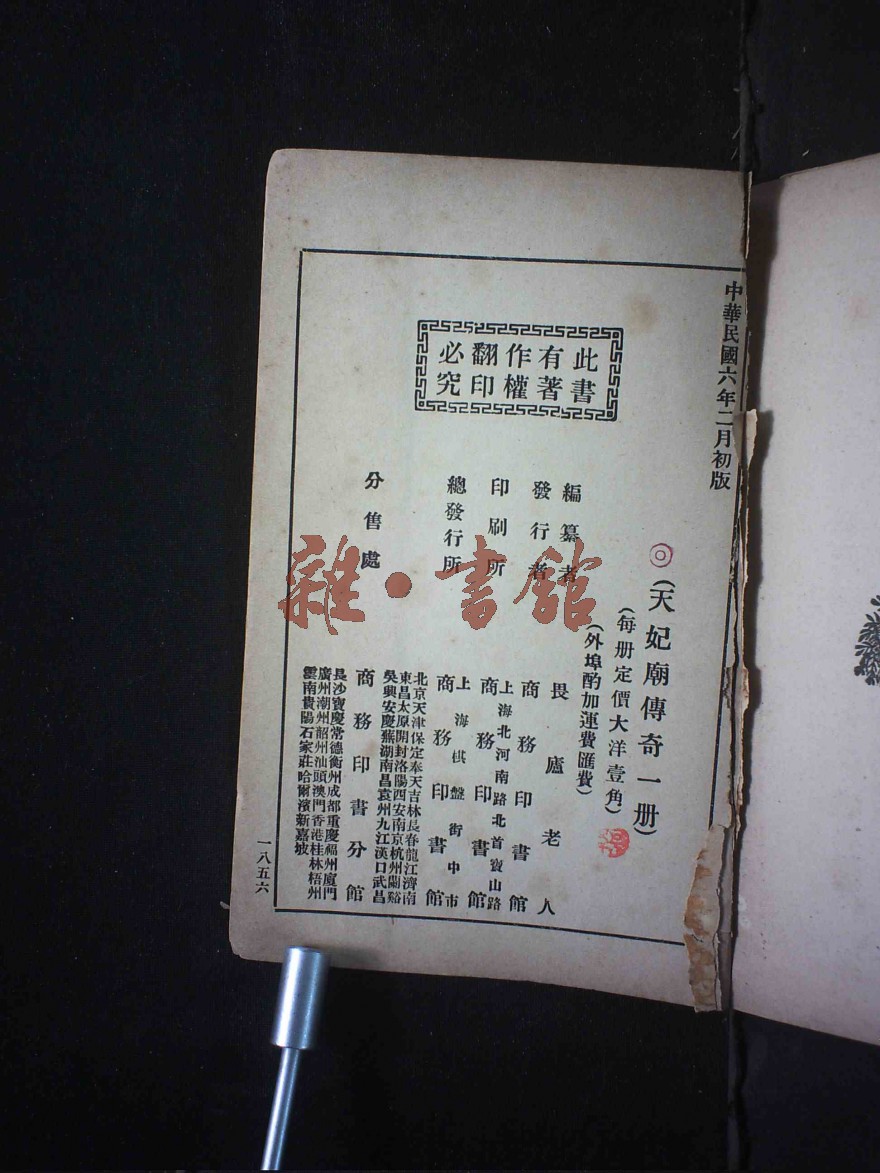 中華民國六年二月初版
此書
有著
作權
翻印
必究
◎(天妃廟傳奇一册)
(每册定價大洋壹角)
(外埠酌加運費匯費)
編纂者 畏廬老人
發行者 商務印書館
印刷所 上海北河南路北首寶山路
商務印書館
總發行所 上海棋盤街中市
商務印書館
分售處
北京天津保定奉天吉林長春龍江濟南
東昌太原開封洛陽西安南京杭州蘭谿
吳興安慶蕪湖南昌袁州九江漢口武昌
商務印書分館
長沙寶慶常德衡州成都重慶福州廈門
廣州潮州韶州汕頭澳門香港桂林梧州
雲南貴陽石家莊哈爾濱新嘉坡
一八五六
雜·書館